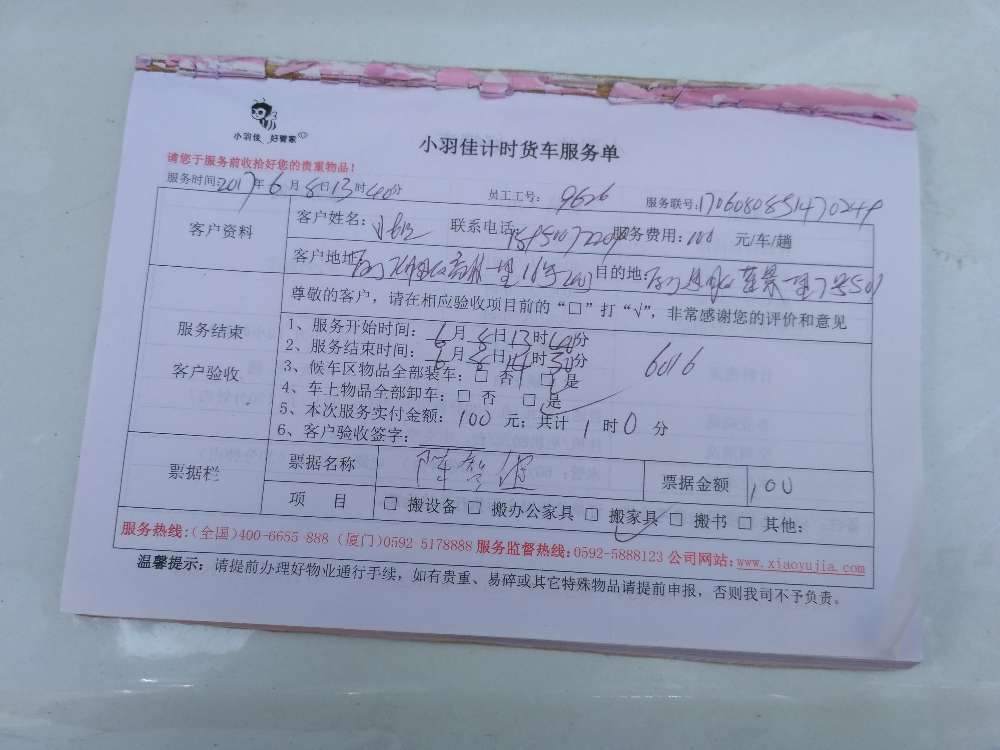 小羽佳 好管家
小羽佳计时货车服务单
请您于服务前收拾好您的贵重物品!
服务时间:2017年6月8日13时40分 员工工号: 9626 服务联号:170608085147 0249
客户资料 客户姓名: 联系电话 服务费用:100 元/车/趟
客户地址: 目的地:
尊敬的客户,请在相应验收项目前的“□”打“√”,非常感谢您的评价和意见
服务结束
客户验收
1、服务开始时间: 6月8日13时40分
2、服务结束时间: 6月8日14时30分
6016
3、候车区物品全部装车:□ 否 □ 是
4、车上物品全部卸车:□ 否 □ 是
5、本次服务实付金额:100元;共计 1时0分
6、客户验收签字:
票据栏 票据名称 票据金额 100
项 目 □ 搬设备 □ 搬办公家具 □ 搬家具 □ 搬书 □ 其他:
服务热线:(全国)400-6655-888 (厦门)0592 5178888 服务监督热线:0592-5888123 公司网站:www.xiaoyujia.com
温馨提示:请提前办理好物业通行手续,如有贵重、易碎或其它特殊物品请提前申报,否则我司不予负责。